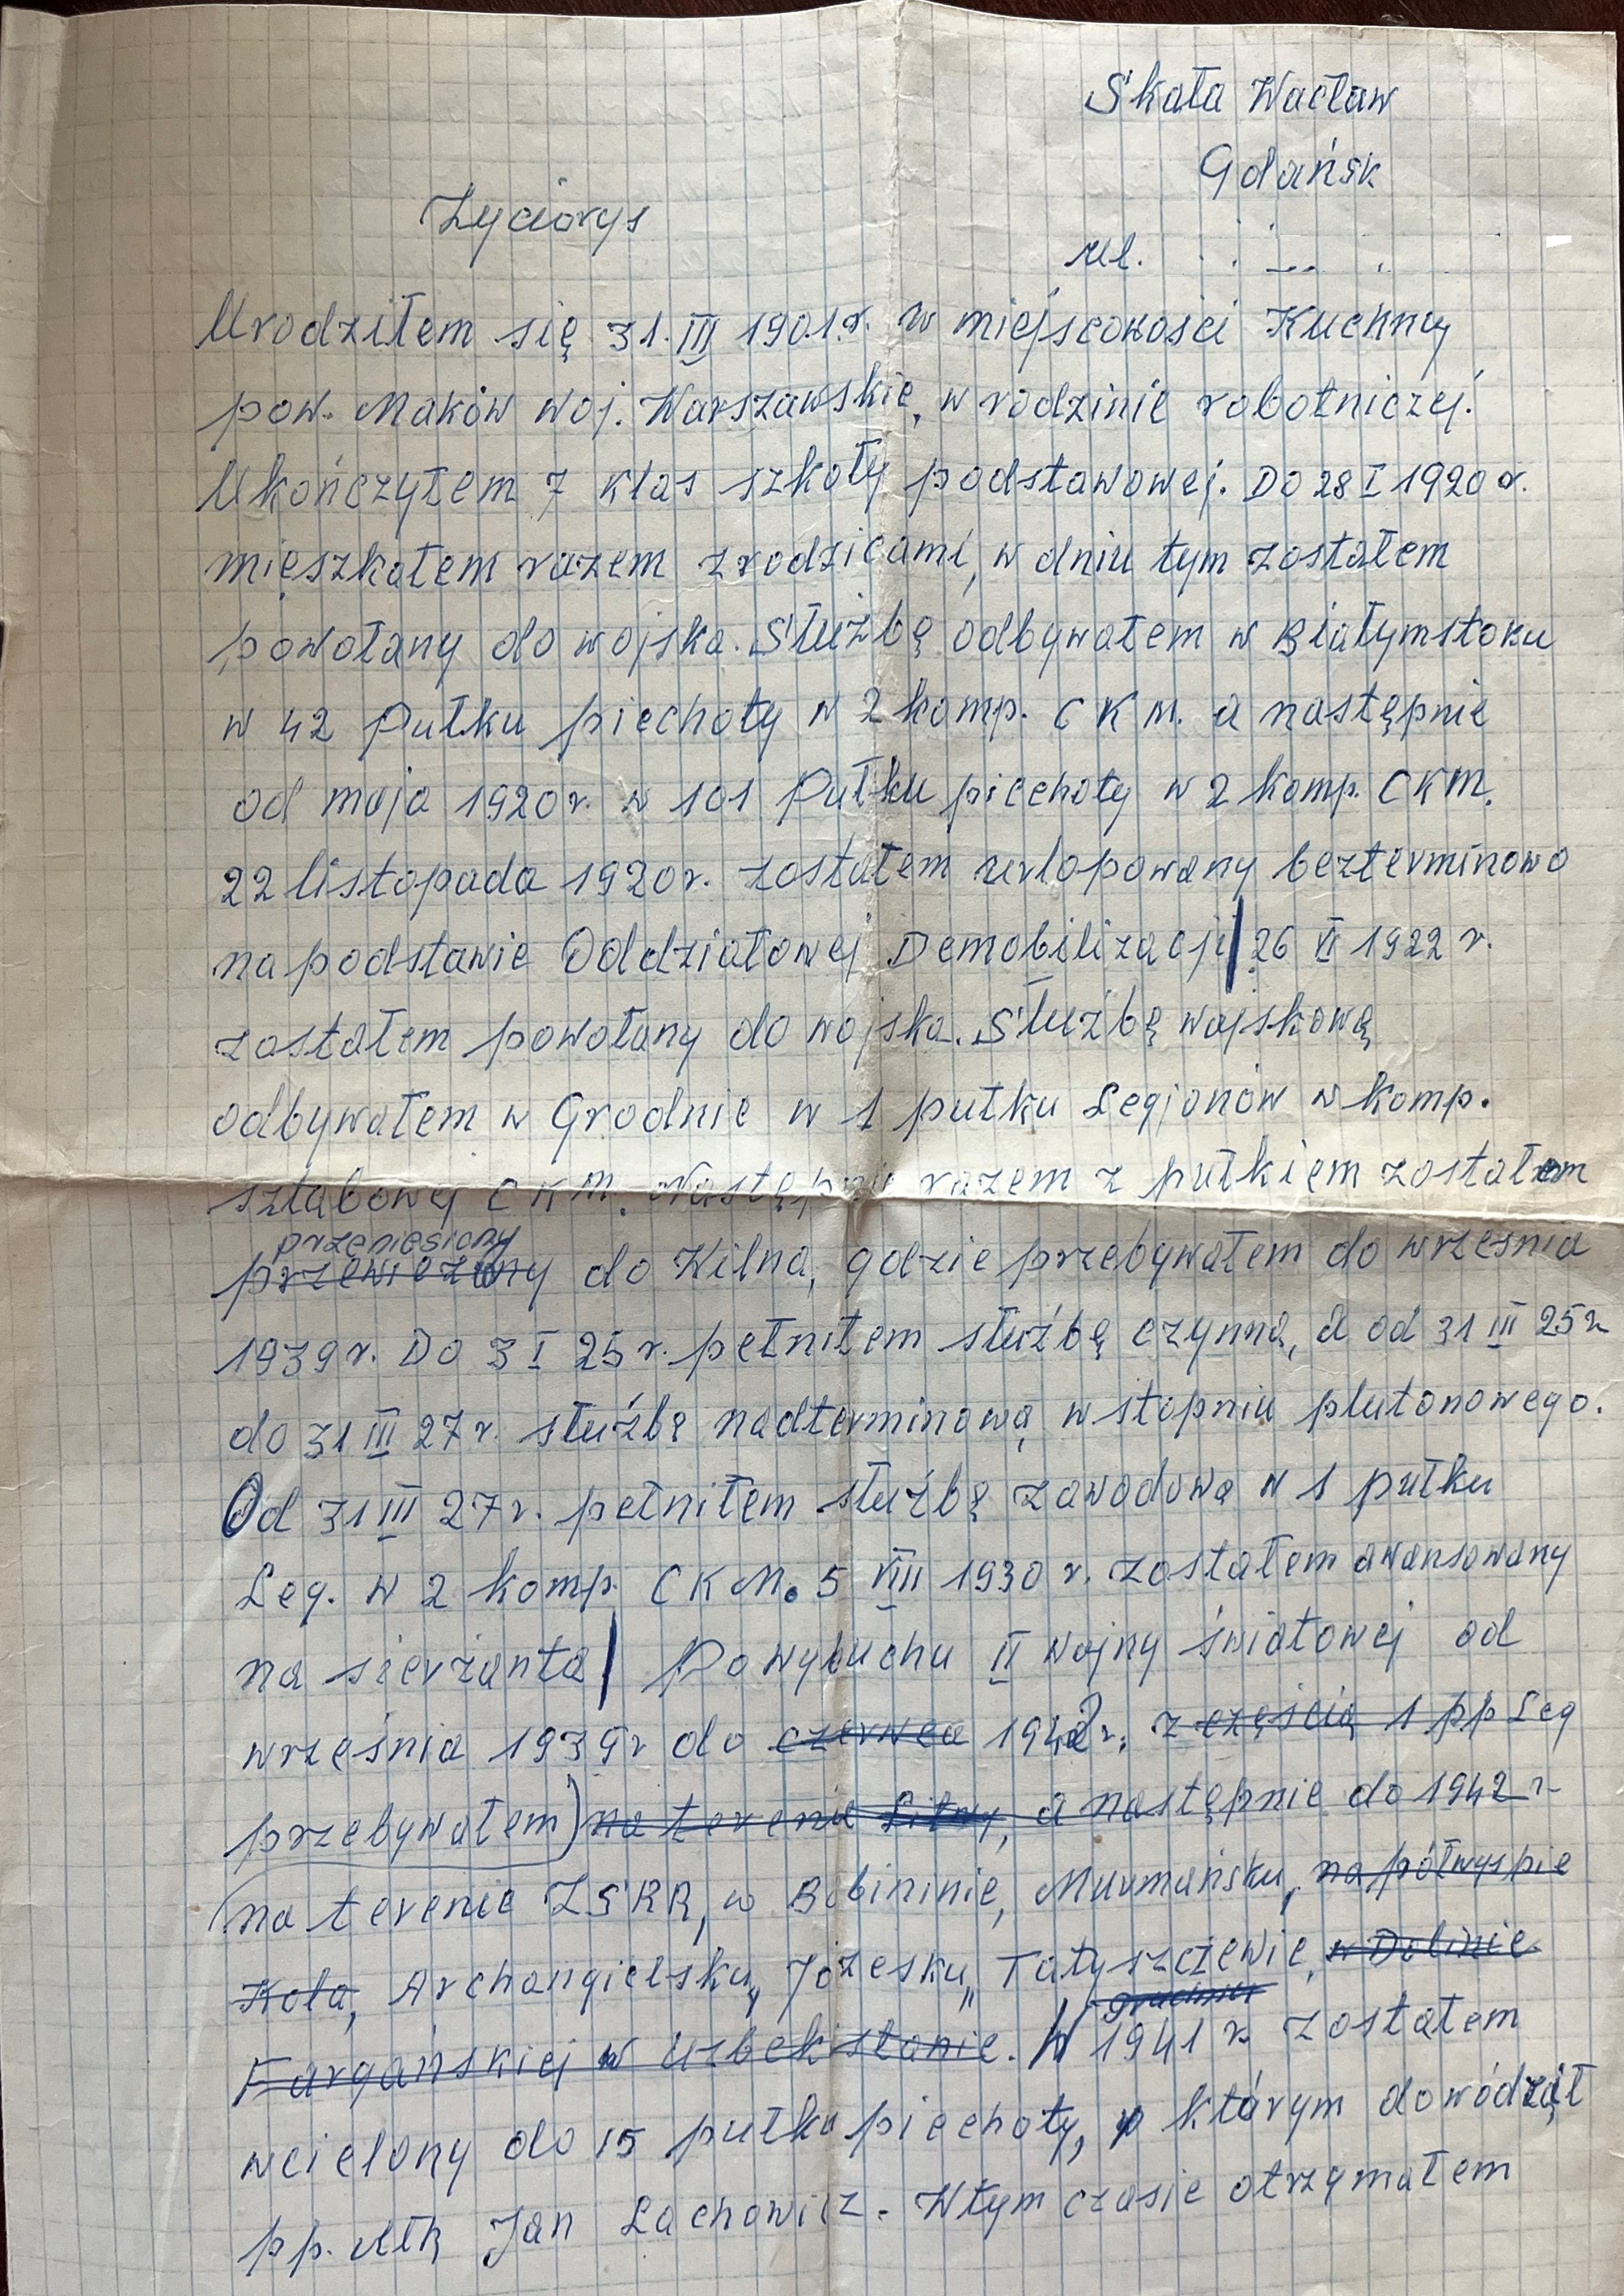 Skała Wacław
Gdańsk
Życiorys
ul.
Urodziłem się 31. III 1901.r. w miejscowości Kuchny
pow. Maków woj. Warszawskie, w rodzinie robotniczej.
Ukończyłem 7 klas szkoły podstawowej. Do 28 I 1920 r.
mieszkałem razem z rodzicami, w dniu tym zostałem
powołany do wojska. Służbę odbywałem w Białymstoku
w 42 Pułku piechoty w 2 komp. C K M. a następnie
od maja 1920 r. w 101 Pułku piechoty w 2 komp. C K M.
22 listopada 1920 r. zostałem urlopowany bezterminowo
na podstawie Oddziałowej Demobilizacji/ 26 VI 1922 r.
zostałem powołany do wojska. Służbę wojskową
odbywałem w Grodnie w 1 pułku Legionów w komp.
sztabowej C K M. Następnie razem z pułkiem zostałem
przeniesiony
przewieziony do Wilna, gdzie przebywałem do września
1939 r. Do 3 I 25 r. pełniłem służbę czynną, a od 31 III 25 r
do 31 III 27 r. służbę nadterminową w stopniu plutonowego.
Od 31 III 27 r. pełniłem służbę zawodową w 1 pułku
Leg. w 2 komp. C K M. 5 VIII 1930 r. zostałem awansowany
na sierżanta/ Po wybuchu II wojny światowej od
września 1939 r do czerwca 1942 r. z częścią 1 pp Leg
przebywałem) na terenie Litwy, a następnie do 1942 r
(na terenie ZSRR, w Bobininie, Murmańsku, na półwyspie
Kola, Archangielsku, Jozesku, Tatyszczewie, w Dolinie
Fargańskiej w Uzbekistanie. W 1941 r. zostałem
wcielony do 15 pułku piechoty, w którym dowódził
pp. płk Jan Lachowicz. W tym czasie otrzymałem